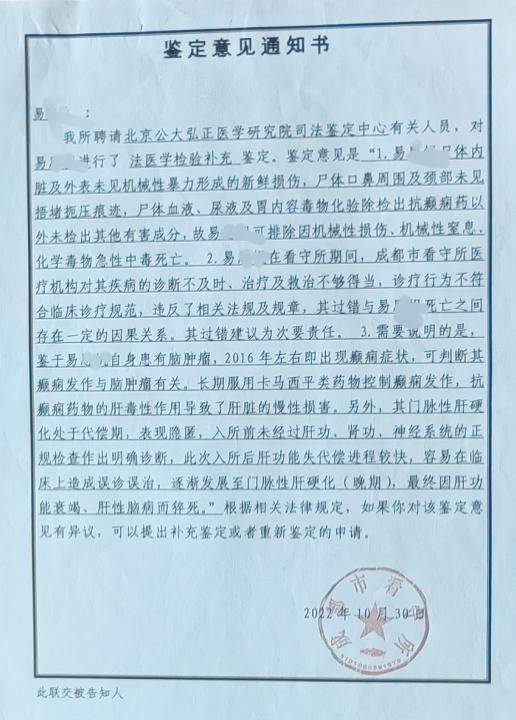 鉴定意见通知书
易 ：
我所聘请北京公大弘正医学研究院司法鉴定中心有关人员，对
易 进行了 法医学检验补充 鉴定。鉴定意见是“1.易 尸体内
脏及外表未见机械性暴力形成的新鲜损伤，尸体口鼻周围及颈部未见
捂堵扼压痕迹，尸体血液、尿液及胃内容毒物化验除检出抗癫痫药以
外未检出其他有害成分，故易 可排除因机械性损伤、机械性窒息、
化学毒物急性中毒死亡。 2.易 在看守所期间，成都市看守所医
疗机构对其疾病的诊断不及时、治疗及救治不够得当，诊疗行为不符
合临床诊疗规范，违反了相关法规及规章，其过错与易 死亡之间
存在一定的因果关系。其过错建议为次要责任。 3.需要说明的是，
鉴于易 自身患有脑肿瘤，2016年左右即出现癫痫症状，可判断其
癫痫发作与脑肿瘤有关。长期服用卡马西平类药物控制癫痫发作，抗
癫痫药物的肝毒性作用导致了肝脏的慢性损害。另外，其门脉性肝硬
化处于代偿期，表现隐匿，入所前未经过肝功、肾功、神经系统的正
规检查作出明确诊断，此次入所后肝功能失代偿进程较快，容易在临
床上造成误诊误治，逐渐发展至门脉性肝硬化（晚期），最终因肝功
能衰竭、肝性脑病而猝死。”根据相关法律规定，如果你对该鉴定意
见有异议，可以提出补充鉴定或者重新鉴定的申请。
成都市看守所
2022年10月30日
此联交被告知人